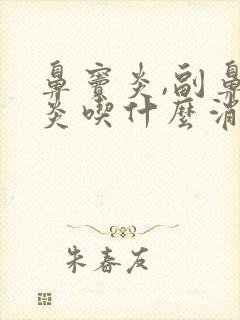 鼻竇炎,副鼻
炎喫什麼消
朱春友